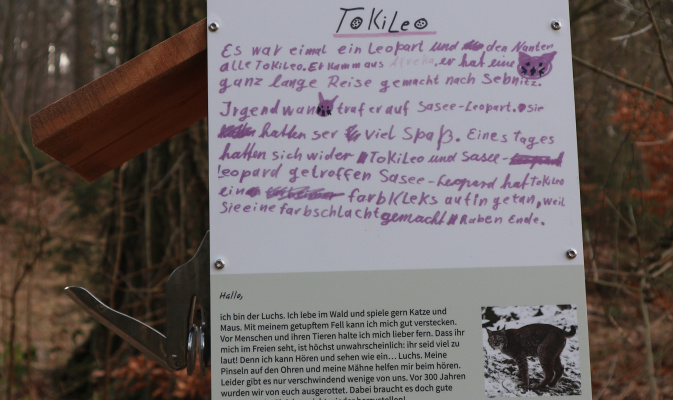 ToKiLeo
Es war eimal ein Leopart und den Nanten
alle ToKiLeo. Er kamm aus Afreka, er hat eine
ganz lange Reise gemacht nach Sebnitz.
Irgendwan traf er auf Sasee-Leopart. sie
hatten ser viel Spaß. Eines Tages
hatten sich wider ToKiLeo und Sasee-
Leopard getroffen Sasee-Leopard hat ToKiLeo
ein farbkleks auf in getan, weil
Sie eine farbschlacht gemacht Raben Ende.
Hallo,
ich bin der Luchs. Ich lebe im Wald und spiele gern Katze und
Maus. Mit meinem getupftem Fell kann ich mich gut verstecken.
Vor Menschen und ihren Tieren halte ich mich lieber fern. Dass ihr
mich im Freien seht, ist höchst unwahrscheinlich: ihr seid viel zu
laut! Denn ich kann Hören und sehen wie ein... Luchs. Meine
Pinseln auf den Ohren und meine Mähne helfen mir beim hören.
Leider gibt es nur verschwindend wenige von uns. Vor 300 Jahren
wurden wir von euch ausgerottet. Dabei braucht es doch gute